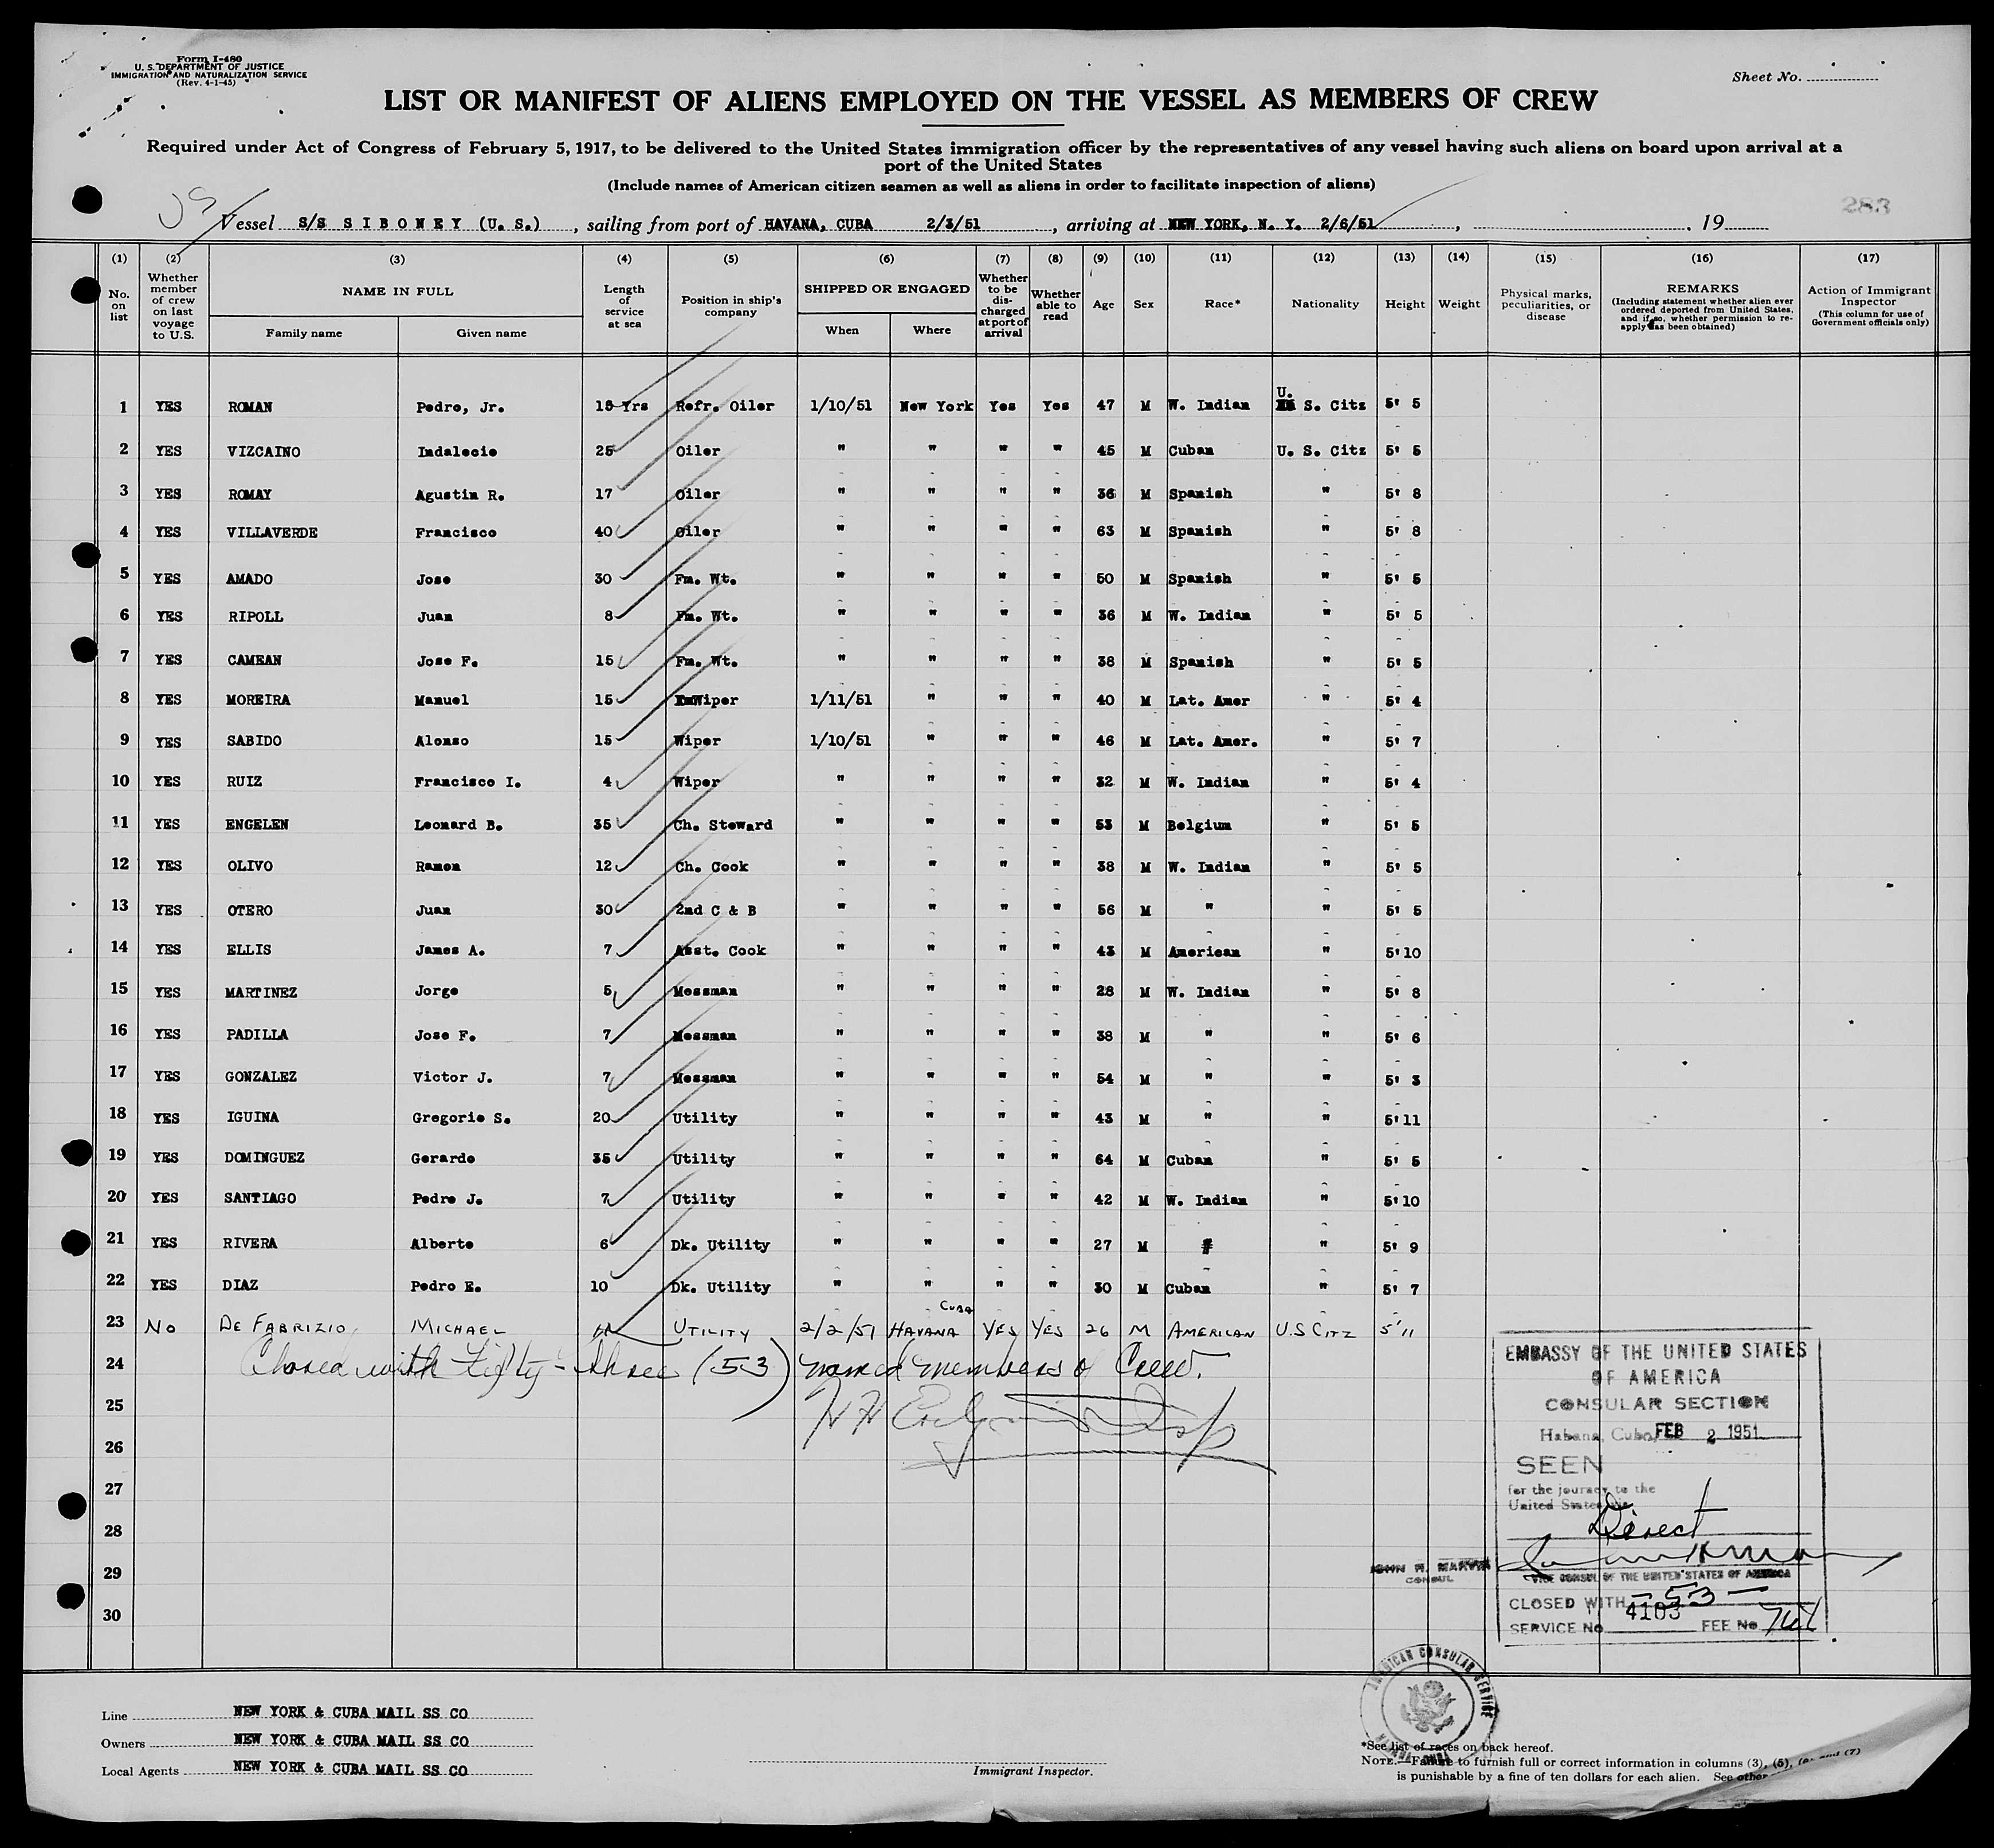 Form I-480
U. S. DEPARTMENT OF JUSTICE
IMMIGRATION AND NATURALIZATION SERVICE
(Rev. 4-1-45)
Sheet No.
LIST OR MANIFEST OF ALIENS EMPLOYED ON THE VESSEL AS MEMBERS OF CREW
Required under Act of Congress of February 5, 1917, to be delivered to the United States immigration officer by the representatives of any vessel having such aliens on board upon arrival at a
port of the United States
(Include names of American citizen seamen as well as aliens in order to facilitate inspection of aliens)
283
Vessel S/S S I B O N E Y (U. S.), sailing from port of HAVANA, CUBA 2/3/51, arriving at NEW YORK, N. Y. 2/6/51, 19
(1) (2) (3) (4) (5) (6) (7) (8) (9) (10) (11) (12) (13) (14) (15) (16) (17)
No. on list
Whether member of crew on last voyage to U.S.
NAME IN FULL
Family name Given name
Length of service at sea
Position in ship's company
SHIPPED OR ENGAGED
When Where
Whether to be discharged at port of arrival
Whether able to read
Age
Sex
Race*
Nationality
Height
Weight
Physical marks, peculiarities, or disease
REMARKS
(Including statement whether alien ever ordered deported from United States, and if so, whether permission to re-apply has been obtained)
Action of Immigrant Inspector
(This column for use of Government officials only)
1 YES ROMAN Pedro, Jr. 18 Yrs Refr. Oiler 1/10/51 New York Yes Yes 47 M W. Indian U. S. Citz 5' 5
2 YES VIZCAINO Indalecio 25 Oiler " " " " 45 M Cuban U. S. Citz 5' 5
3 YES ROMAY Agustin R. 17 Oiler " " " " 36 M Spanish " 5' 8
4 YES VILLAVERDE Francisco 40 Oiler " " " " 63 M Spanish " 5' 8
5 YES AMADO Jose 30 Fm. Wt. " " " " 50 M Spanish " 5' 5
6 YES RIPOLL Juan 8 Fm. Wt. " " " " 36 M W. Indian " 5' 5
7 YES CAMEAN Jose F. 15 Fm. Wt. " " " " 38 M Spanish " 5' 5
8 YES MOREIRA Manuel 15 Wiper 1/11/51 " " " 40 M Lat. Amer " 5' 4
9 YES SABIDO Alonso 15 Wiper 1/10/51 " " " 46 M Lat. Amer. " 5' 7
10 YES RUIZ Francisco I. 4 Wiper " " " " 32 M W. Indian " 5' 4
11 YES ENGELEN Leonard B. 35 Ch. Steward " " " " 53 M Belgium " 5' 5
12 YES OLIVO Ramon 12 Ch. Cook " " " " 38 M W. Indian " 5' 5
13 YES OTERO Juan 30 2nd C & B " " " " 56 M " " 5' 5
14 YES ELLIS James A. 7 Asst. Cook " " " " 43 M American " 5'10
15 YES MARTINEZ Jorge 5 Messman " " " " 28 M W. Indian " 5' 8
16 YES PADILLA Jose F. 7 Messman " " " " 38 M " " 5' 6
17 YES GONZALEZ Victor J. 7 Messman " " " " 54 M " " 5' 3
18 YES IGUINA Gregorio S. 20 Utility " " " " 43 M " " 5'11
19 YES DOMINGUEZ Gerardo 35 Utility " " " " 64 M Cuban " 5' 5
20 YES SANTIAGO Pedro J. 7 Utility " " " " 42 M W. Indian " 5'10
21 YES RIVERA Alberto 6 Dk. Utility " " " " 27 M " " 5' 9
22 YES DIAZ Pedro E. 10 Dk. Utility " " " " 30 M Cuban " 5' 7
23 No DE FABRIZIO, MICHAEL UTILITY 2/2/51 HAVANA CUBA YES YES 26 M AMERICAN U.S CITZ 5'11
24 Closed with Fifty-three (53) named members of Crew.
25
26
27
28
29
30
EMBASSY OF THE UNITED STATES
OF AMERICA
CONSULAR SECTION
Habana, Cuba, FEB 2 1951
SEEN
for the journey to the
United States via
Direct
JOHN H. MARVIN
CONSUL
VICE CONSUL OF THE UNITED STATES OF AMERICA
CLOSED WITH -53-
SERVICE No 4103 FEE No
AMERICAN CONSULAR SERVICE
Line NEW YORK & CUBA MAIL SS CO
Owners NEW YORK & CUBA MAIL SS CO
Local Agents NEW YORK & CUBA MAIL SS CO
Immigrant Inspector.
*See list of races on back hereof.
NOTE.—Failure to furnish full or correct information in columns (3), (5), (6) and (7)
is punishable by a fine of ten dollars for each alien. See other